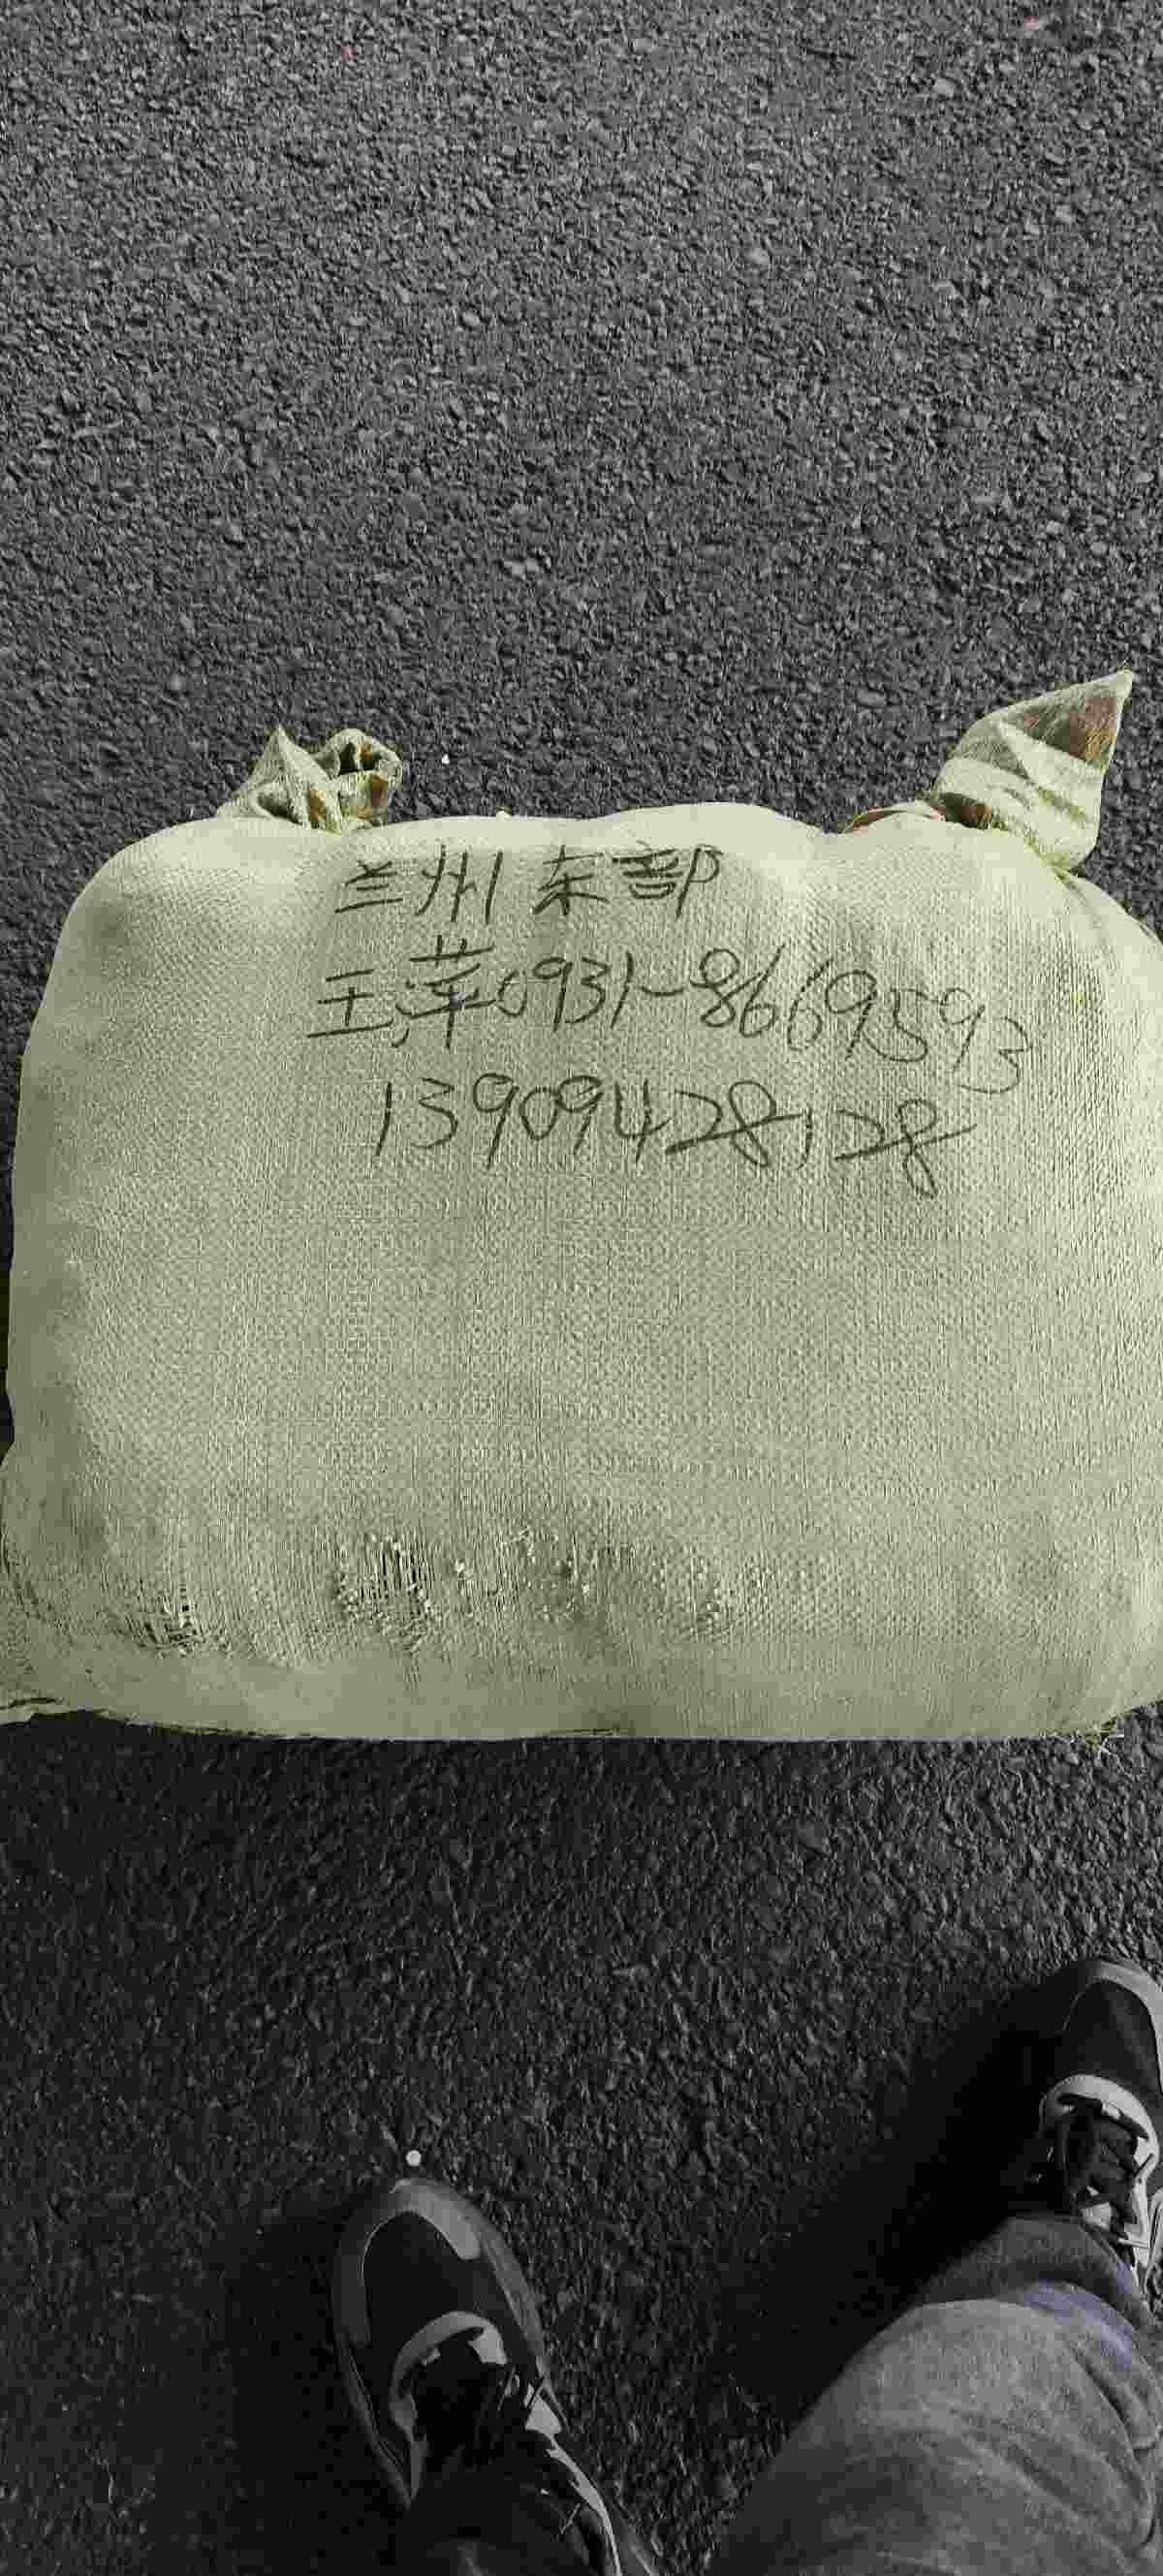 兰州东部
王萍0931-8669593
13909428128